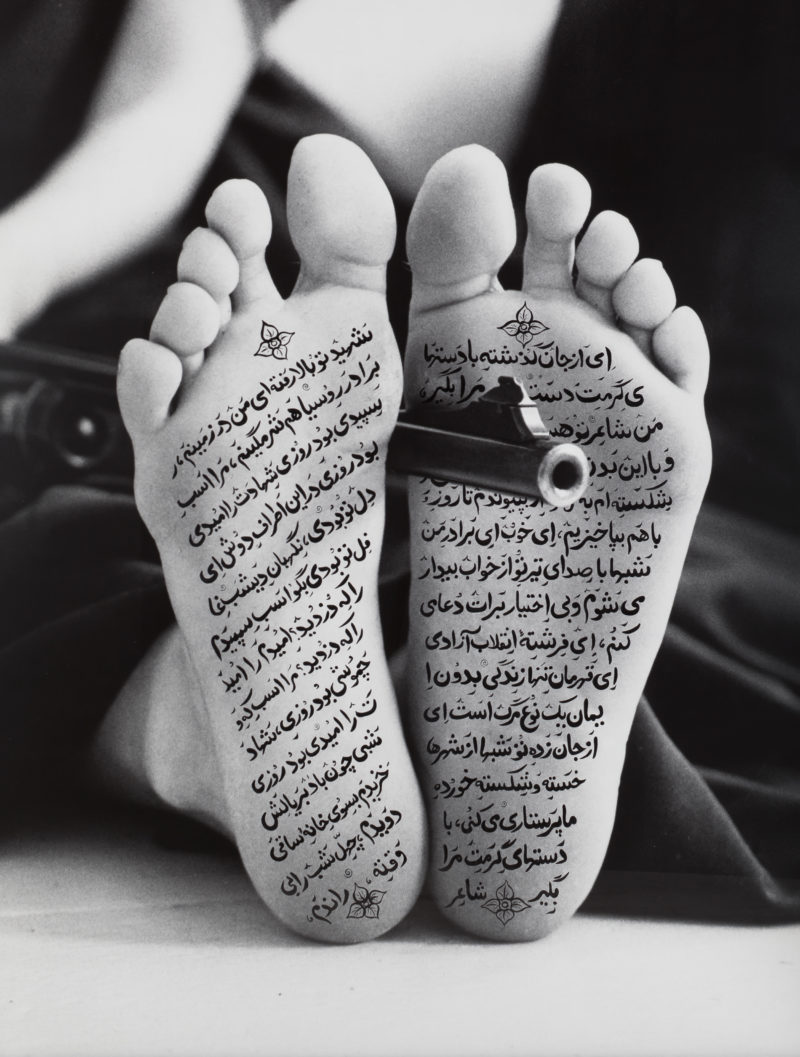 ای از جان گذشته با دستها
ی گرمت دست مرا بگیر،
من شاعر تو
و با این
شکسته ام پیوندم تا روز
با هم بپاخیزیم، ای خوب ای برادر من
شبها با صدای تیر تو از خواب بیدار
می شوم و بی اختیار برات دعای
کنم، ای فرشتهٔ انقلاب آزادی
ای قهرمان تنها زندگی بدون ا
یمان یک نوع مرگ است ای
از جان زده تو شبها از شهرها
خسته و شکسته خورده
ما پرستاری می کنی، با
دستهای گرمت مرا
بگیر شاعر
شهید تو بالا رفته ای من در زمینم، ر
برادر روسیاهم مرا اسب
سپیدی بود روزی شهادت را امیدی
بود روزی در این اطراف دوش ای
دل تو بودی، نگهبان دیشب
تو بودی بگو اسب سپیدم
را که دزدید؟ امیدم را امید
را که دزدید؟ مرا اسب
چموشی بود روزی، شهاد
ت را امیدی بود روزی
شبی چون باد بر یالش
خزیدم بسوی خانهٔ ساقی
دویدم، چهل شب را
راندم،